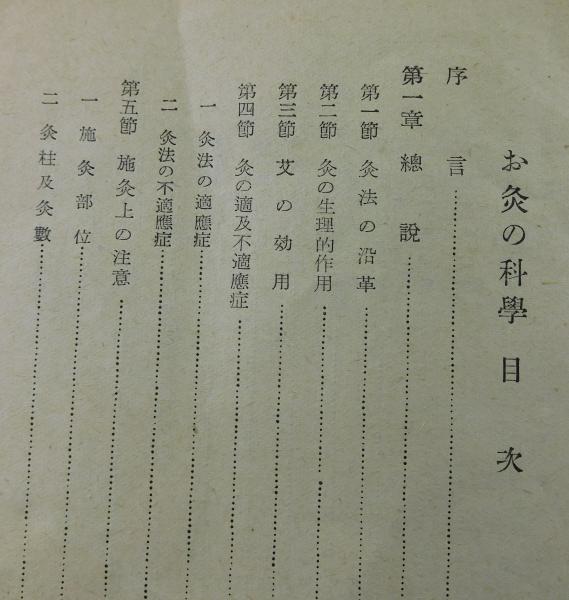 お灸の科學 目次
序言
第一章 總說
第一節 灸法の沿革
第二節 灸の生理的作用
第三節 艾の効用
第四節 灸の適及不適應症
一 灸法の適應症
二 灸法の不適應症
第五節 施灸上の注意
一 施灸部位
二 灸柱及灸數